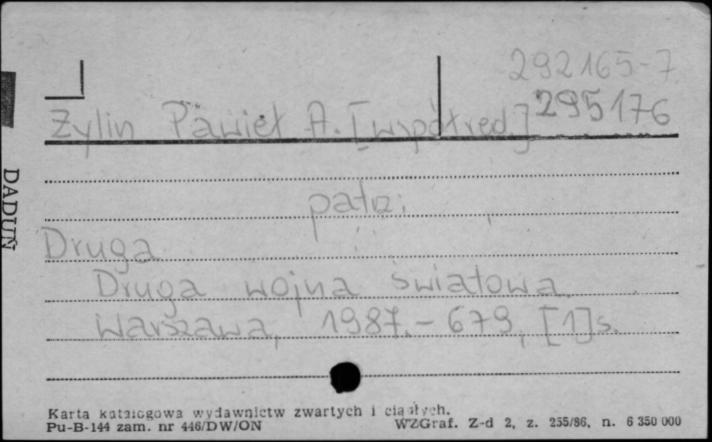 292165-7
295176
Żylin Paweł A. [współred.]
patrz:
Druga
Druga wojna światowa.
Warszawa, 1987. - 679, [1] s.
Karta katalogowa wydawnictw zwartych i ciągłych.
Pu-B-144 zam. nr 446/DW/ON WZGraf. Z-d 2, z. 255/86, n. 6 350 000
DADUŃ